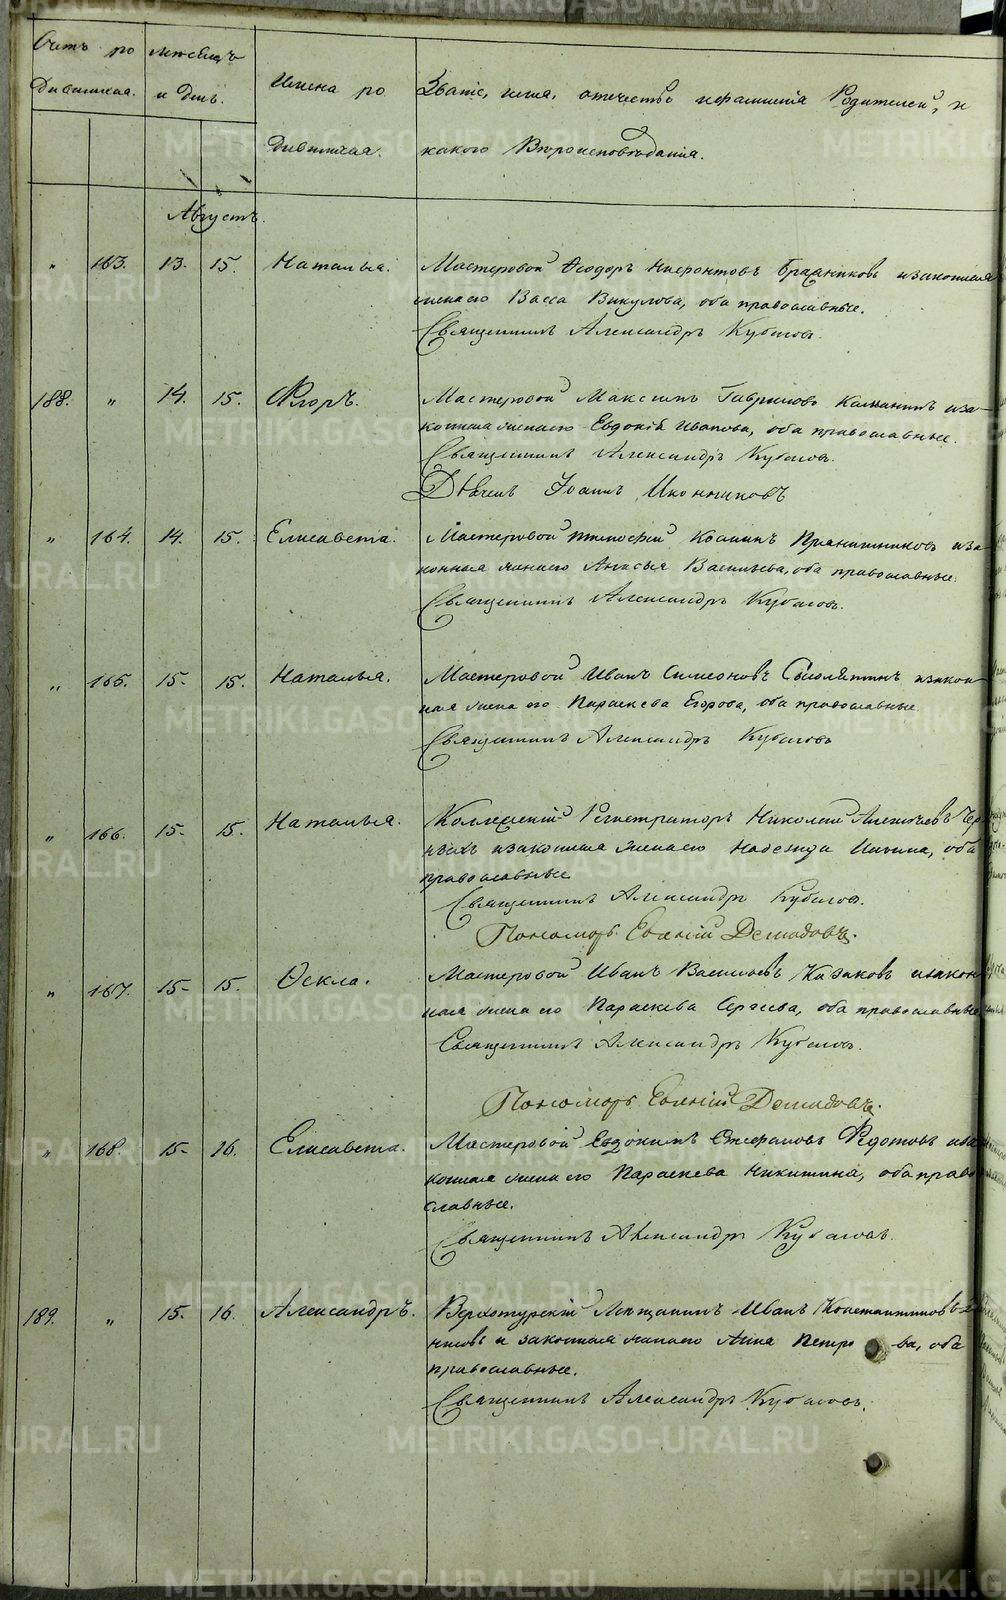 Счетъ ро
дившихся.
мѣсяцъ
и день.
Имена ро
дившихся.
Званіе, имя, отечество и фамилія Родителей, и
какого Вѣроисповѣданія.
Августъ.
" 163. 13. 15. Наталья. Мастеровой Ѳеодоръ законная
жена его Васса Викулова, оба православные.
Священникъ Александръ Кубасовъ.
188. " 14. 15. Флоръ. Мастеровой Максимъ Гавриловъ и за-
конная жена его Евдокія Иванова, оба православные.
Священникъ Александръ Кубасовъ.
Дьячекъ Іоаннъ Иконниковъ
" 164. 14. 15. Елисавета. Мастеровой Тимофей Козминъ Пряничниковъ и за-
конная жена его Васильева, оба православные.
Священникъ Александръ Кубасовъ.
" 165. 15. 15. Наталья. Мастеровой Иванъ Симеоновъ и закон-
ная жена его Параскева Егорова, оба православные.
Священникъ Александръ Кубасовъ
" 166. 15. 15. Наталья. Коллежскій Регистраторъ Николай
и законная жена его Надежда Ильина, оба
православные
Священникъ Александръ Кубасовъ.
Пономарь Евгеній Демидовъ.
" 167. 15. 15. Ѳекла. Мастеровой Иванъ Васильевъ Казаковъ и закон
ная жена его Параскева Сергеева, оба православные
Священникъ Александръ Кубасовъ.
Пономарь Евгеній Демидовъ.
" 168. 15. 16. Елисавета. Мастеровой Евдокимъ Стефановъ Ѳедотовъ и за
конная жена его Параскева Никитина, оба право
славные.
Священникъ Александръ Кубасовъ.
189. " 15. 16. Александръ. Верхотурскій Мѣщанинъ Иванъ Константиновъ
и законная жена его Анна Петрова, оба
православные.
Священникъ Александръ Кубасовъ.
METRIKI.GASO-URAL.RU